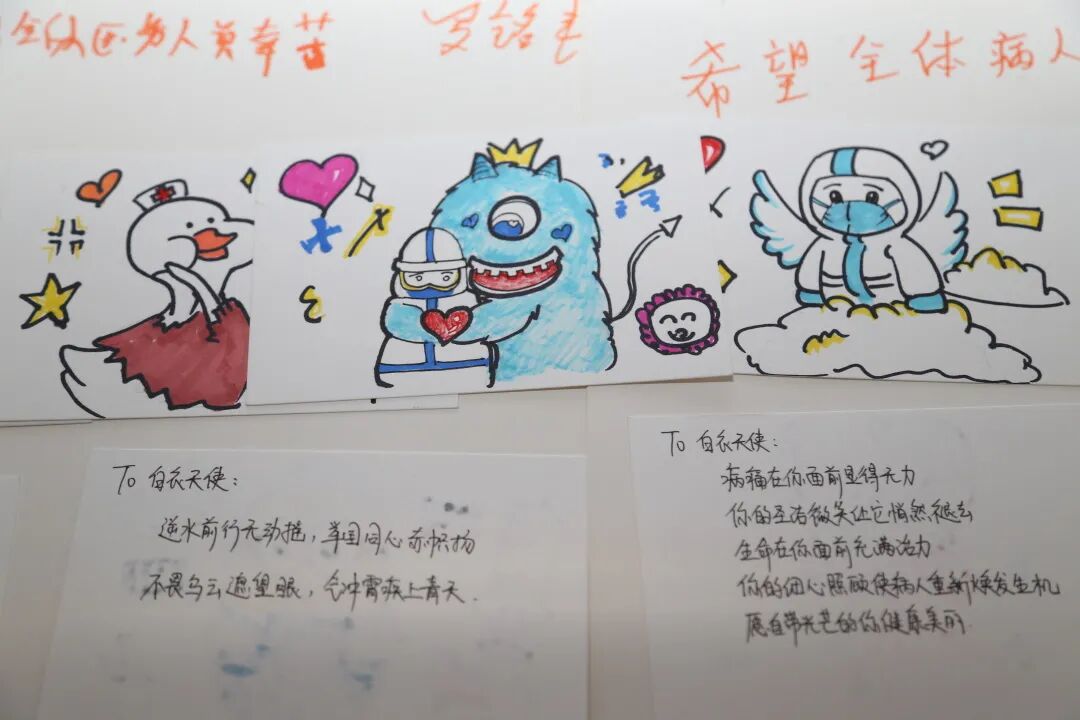 医务人员辛苦
希望全体病人
To 白衣天使：
逆水前行无动摇，举国同心赤帜扬
不畏乌云遮望眼，会冲霄疾上青天.
To 白衣天使：
病痛在你面前显得无力
你的圣洁微笑让它悄然褪去
生命在你面前充满活力
你的细心照顾使病人重新焕发生机
愿自带光芒的你健康美丽